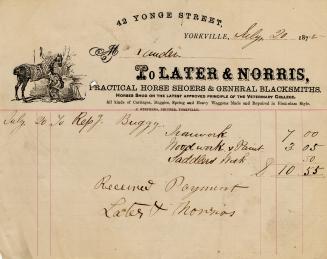 42 YONGE STREET,
YORKVILLE, July 20 187
M
To LATER & NORRIS,
PRACTICAL HORSE SHOERS & GENERAL BLACKSMITHS.
HORSES SHOD ON THE LATEST APPROVED PRINCIPLE OF THE VETERINARY COLLEGE.
All kinds of Carriages, Buggies, Spring and Heavy Waggons Made and Repaired in First-class Style.
July 20 To Rep Buggy
Ironwork 7 00
Woodwork & Paint 3 05
Sadlers Work 50
$ 10 55
Received Payment
Later & Norris